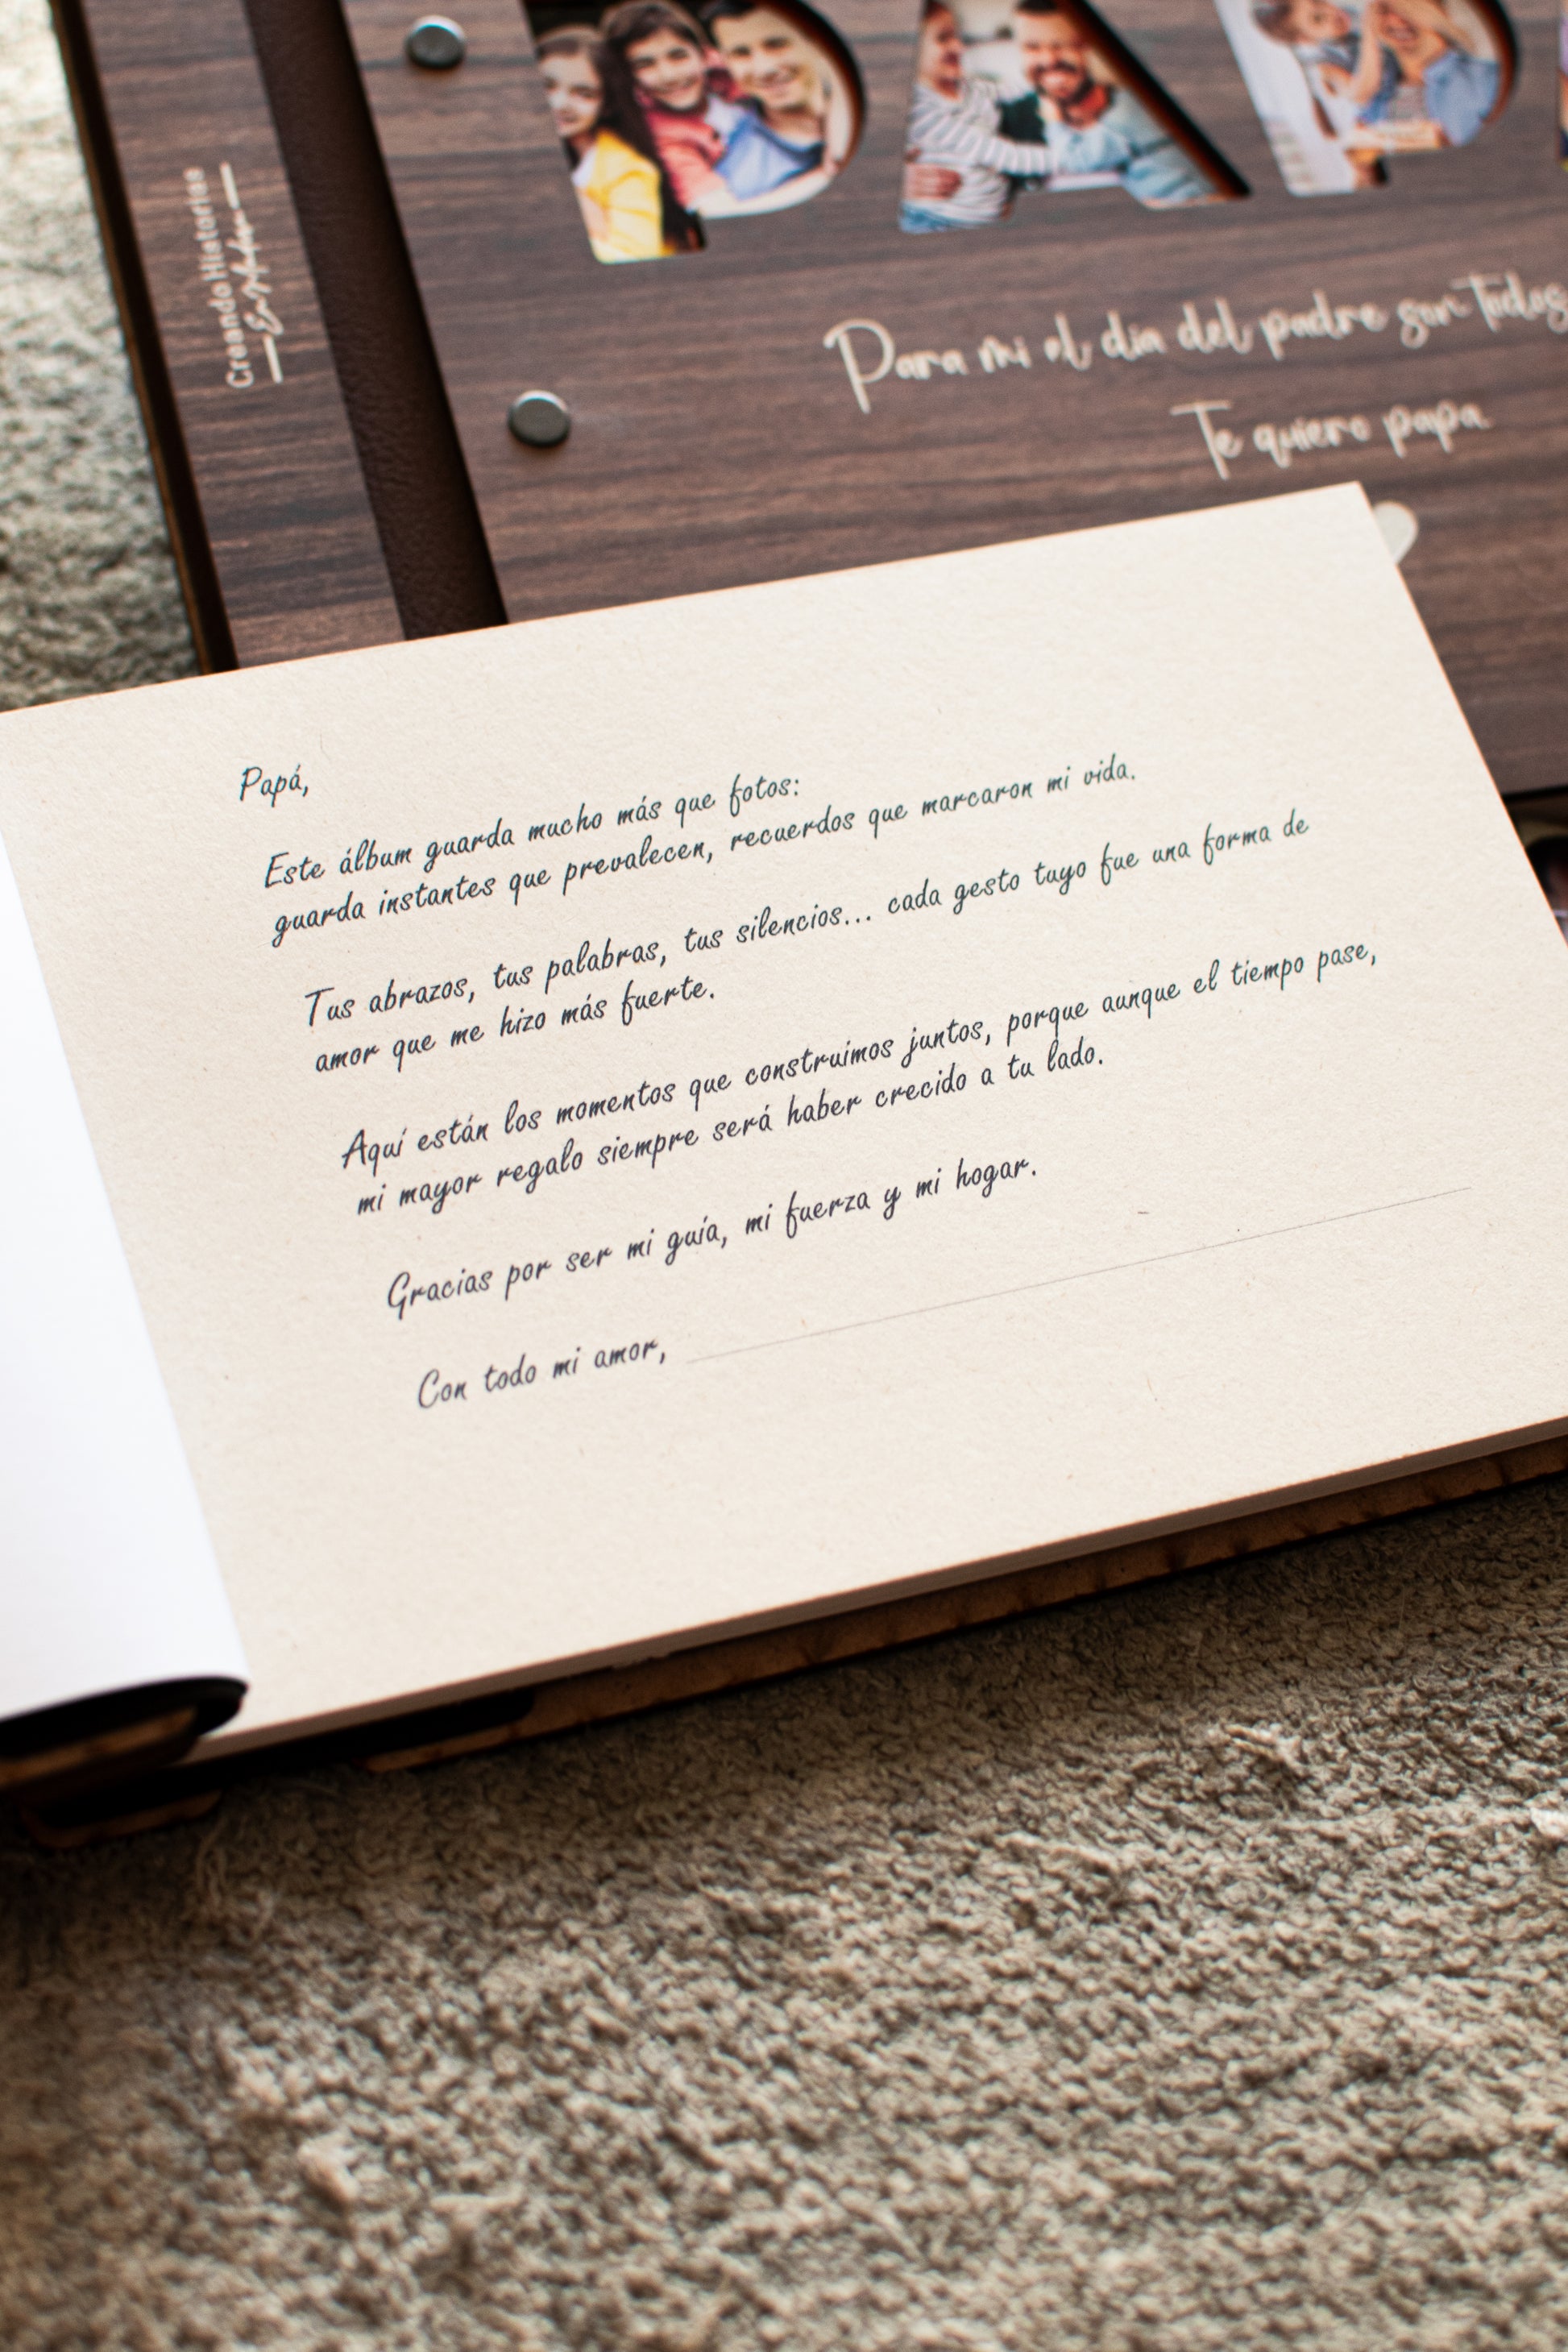 PAP
Creando Historias
En Madera
Para mi el día del padre son todos
Te quiero papa
Papá,
Este álbum guarda mucho más que fotos:
guarda instantes que prevalecen, recuerdos que marcaron mi vida.
Tus abrazos, tus palabras, tus silencios... cada gesto tuyo fue una forma de
amor que me hizo más fuerte.
Aquí están los momentos que construimos juntos, porque aunque el tiempo pase,
mi mayor regalo siempre será haber crecido a tu lado.
Gracias por ser mi guía, mi fuerza y mi hogar.
Con todo mi amor,